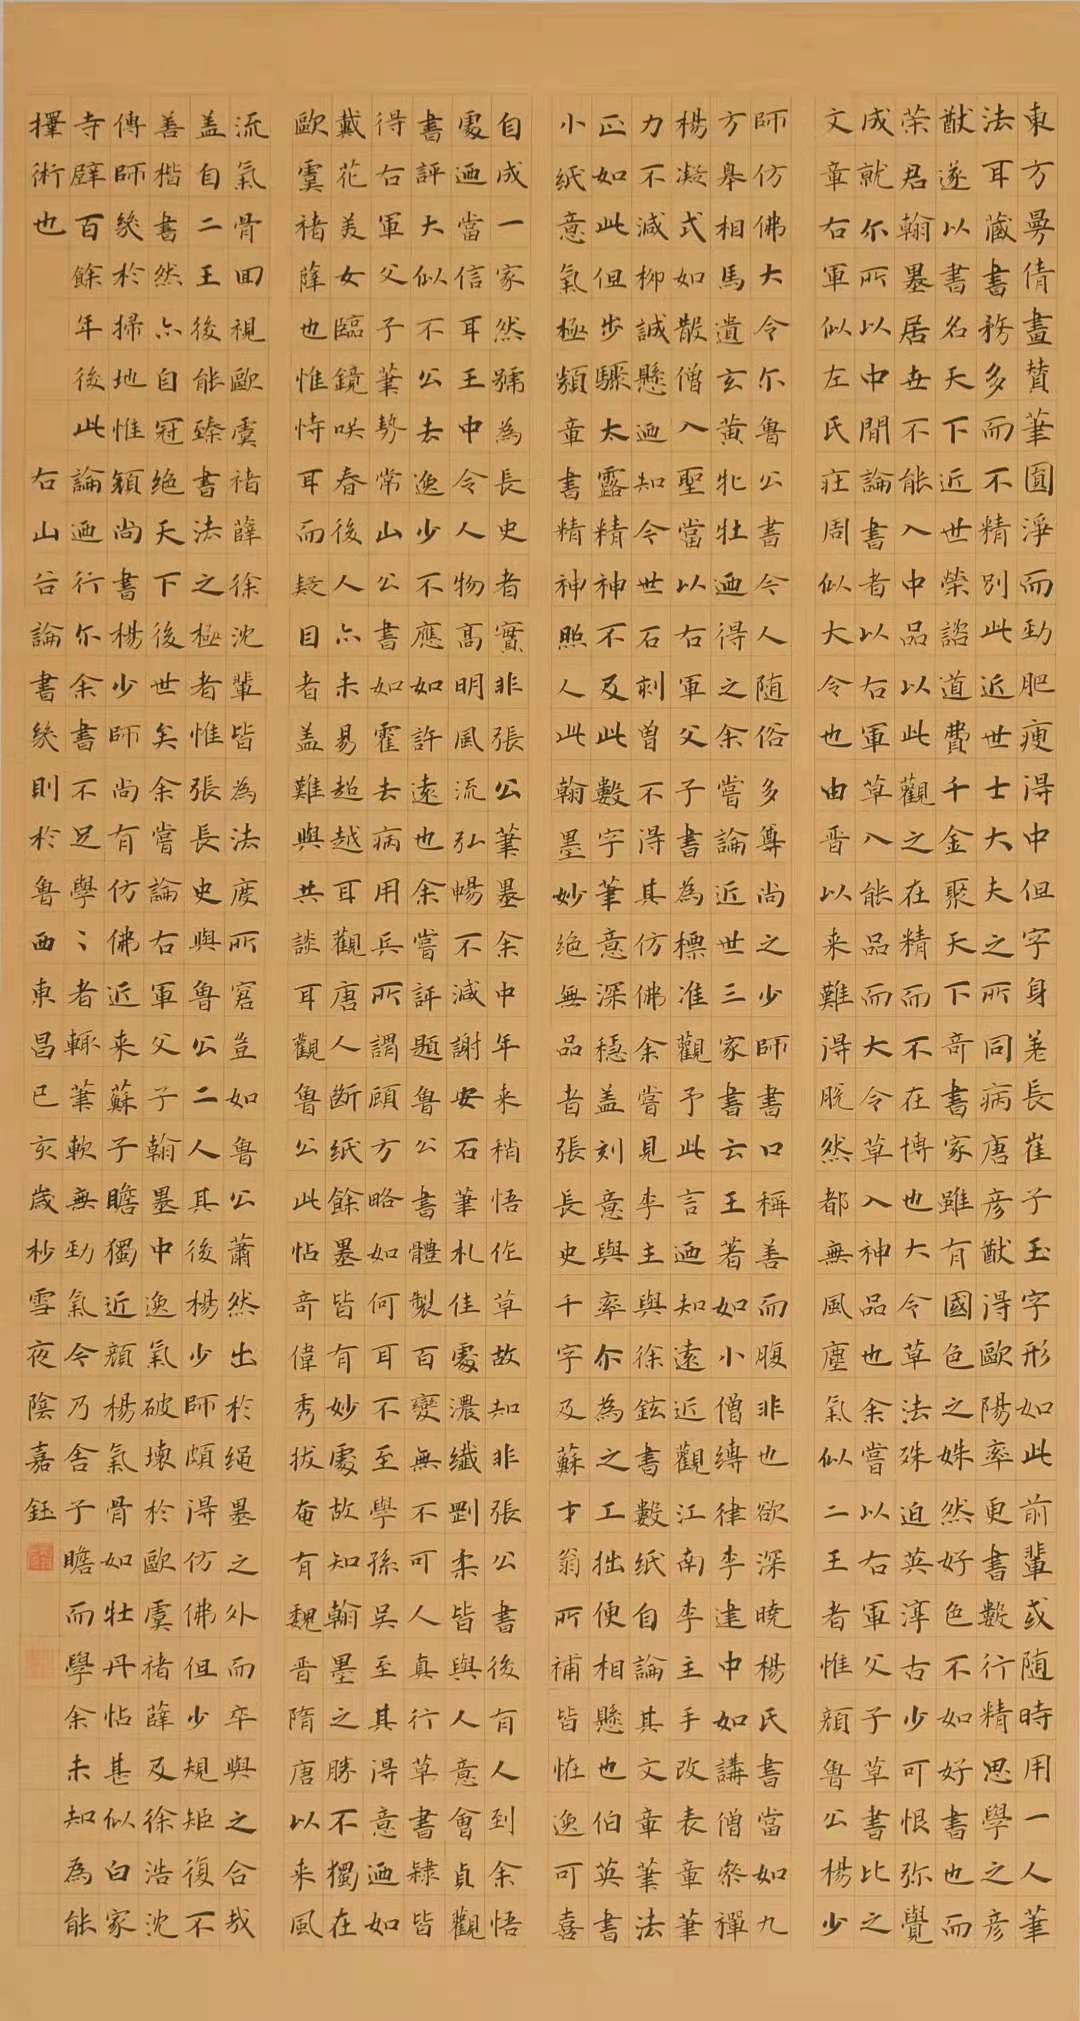 東方曼倩畫賛筆圓淨而勁肥瘦得中但字身差長崔子玉字形如此前輩或随時用一人筆
法耳藏書務多而不精別此近世士大夫之所同病唐彦猷得歐陽率更書數行精思學之彦
猷遂以書名天下近世榮諮道費千金聚天下奇書家雖有國色之姝然好色不如好書也而
荣君翰墨居世不能入中品以此觀之在精而不在博也大令草法殊迫英淳古少可恨弥覺
成就尒所以中間論書者以右軍草入能品而大令草入神品也余嘗以右軍父子草書比之
文章右軍似左氏莊周似大令也由晋以来難得脱然都無風塵氣似二王者惟顔魯公楊少
師仿佛大令尒魯公書今人随俗多尊尚之少師書口稱善而腹非也欲深暁楊氏書當如九
方皋相馬遺玄黄牝牡迺得之余嘗論近世三家書云王著如小僧縛律李建中如講僧叅禪
楊凝式如散僧入聖當以右軍父子書為標准觀予此言迺知遠近觀江南李主手改表章筆
力不減柳誠懸迺知今世石刻曽不得其仿佛余嘗見李主與徐鉉書數紙自論其文章筆法
正如此但步驟太露精神不及此數字筆意深穩盖刻意與率尒為之工拙便相懸也伯英書
小紙意氣極類章書精神照人此翰墨妙絶無品者張長史千字及蘇才翁所補皆恠逸可喜
自成一家然號為長史者實非張公筆墨余中年来稍悟作草故知非張公書後有人到余悟
處迺當信耳王中令人物高明風流弘暢不減謝安石筆札佳處濃纖剛柔皆與人意會貞觀
書評大似不公去逸少不應如許遠也余嘗評題魯公書體製百變無不可人真行草書隸皆
得右軍父子筆勢常山公書如霍去病用兵所謂顧方略如何耳不至學孫吳至其得意迺如
戴花美女臨鏡咲春後人亦未易超越耳觀唐人断紙餘墨皆有妙處故知翰墨之勝不獨在
歐虞褚薛也惟恃耳而疑目者盖難與共談耳觀魯公此帖奇偉秀拔奄有魏晋隋唐以来風
流氣骨回視歐虞褚薛徐沈輩皆為法度所窘豈如魯公蕭然出於繩墨之外而卒與之合哉
盖自二王後能臻書法之極者惟張長史與魯公二人其後楊少師頗得仿佛但少規矩復不
善楷書然亦自冠絶天下後世矣余嘗論右軍父子翰墨中逸氣破壞於歐虞褚薛及徐浩沈
傳師幾於掃地惟顔尚書楊少師尚有仿佛近来蘇子瞻獨近顔楊氣骨如牡丹帖甚似白家
寺壁百餘年後此論迺行尒余書不足學〻者輒筆軟無勁氣今乃舍子瞻而學余未知為能
擇術也 右山谷論書幾則於魯西東昌己亥歲杪雪夜陰嘉鈺